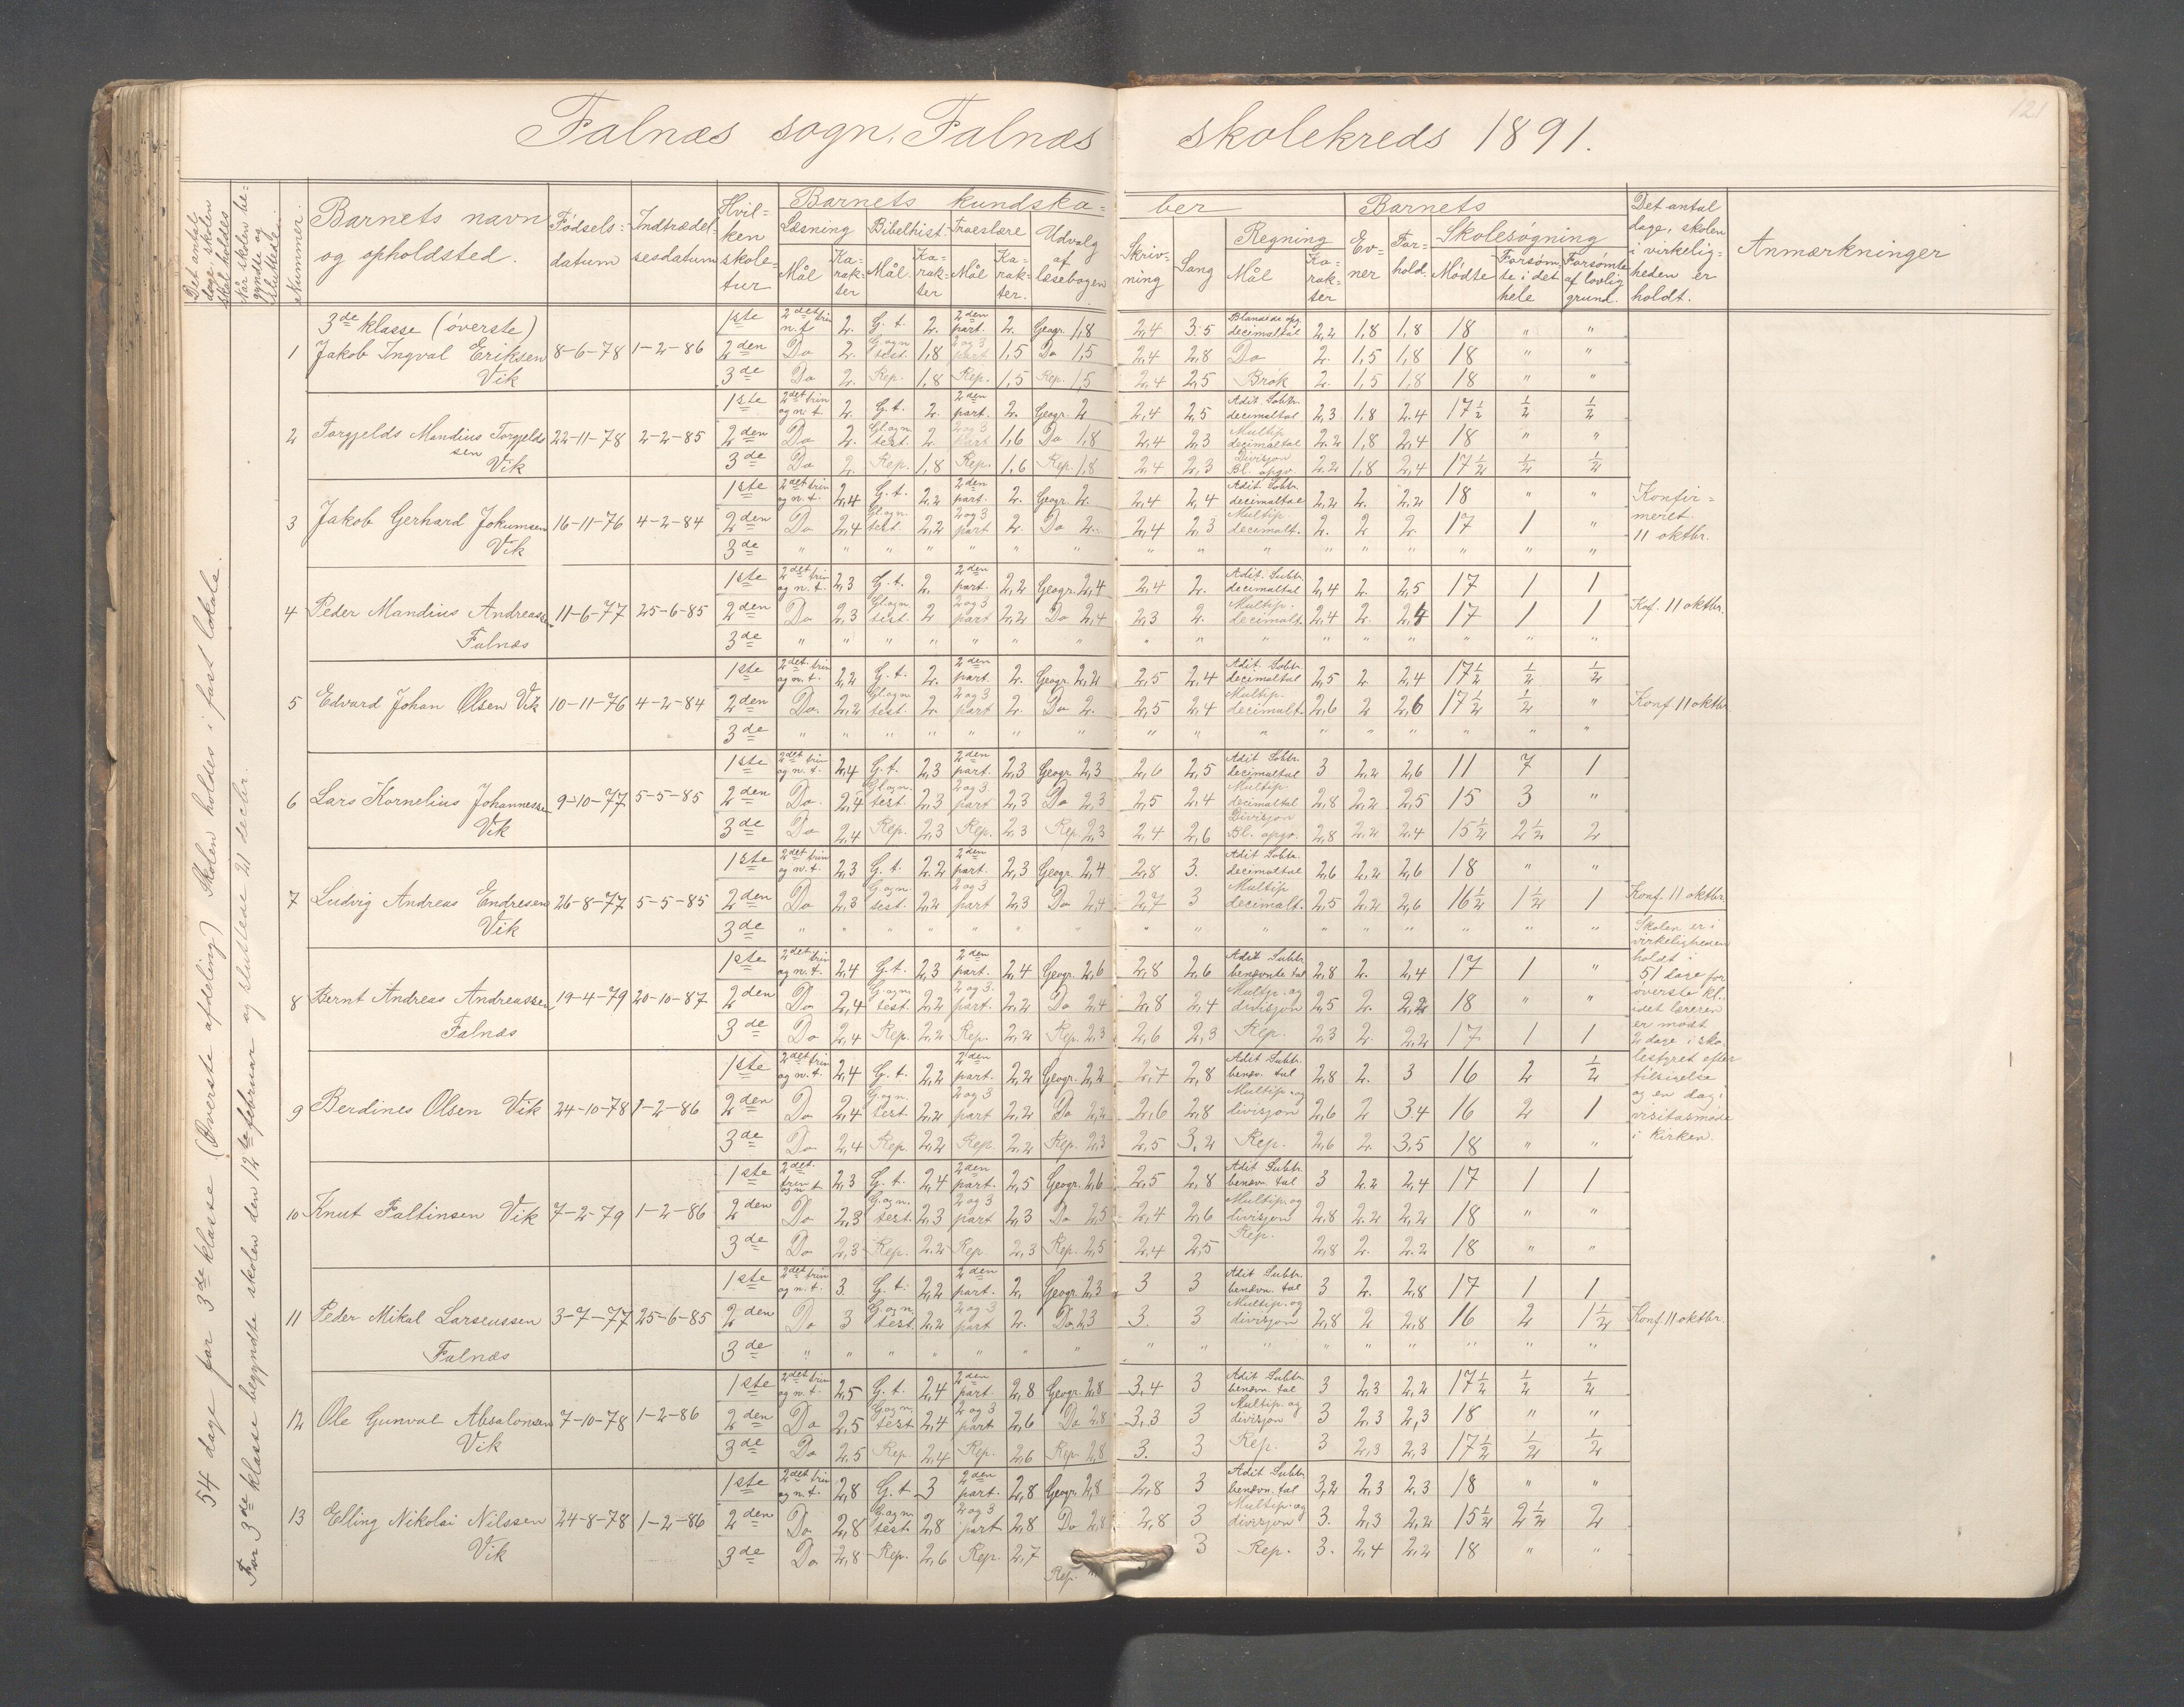 121
Falnæs sogn, Falnæs skolekreds 1891.
Det antal dage skolen skal holdes
Når skolen begyndte og sluttede
Nummer.
Barnets navn og opholdsted.
Fødselsdatum
Indtrædelsesdatum
Hvilken skoletur
Barnets kundskaber
Læsning Mål Karakter
Bibelhist. Mål Karakter
Troeslære Mål Karakter.
Udvalg af læsebogen
Skrivning
Sang
Regning Mål Karakter
Barnets
Evner
Forhold.
Skolesøgning
Mødte
Forsømte i det hele
Forsømte af lovlig grund.
Det antal dage, skolen i virkeligheden er holdt.
Anmærkninger
54 dage for 3de klasse (Øverste afdeling) Skolen holdes i fast lokale.
For 3de klasse begyndte skolen den 12te februar og sluttede 21 decbr.
3de klasse (øverste)
1 Jakob Ingval Eriksen Vik 8-6-78 1-2-86
1ste 2det trin n. t. 2. G. t. 2. 2den part. 2. Geogr. 1,8 2,4 3.5 Blandede opg. decimaltal 2,2 1,8 1,8 18 " "
2den Do 2. G. og n. test. 1,8 2 og 3 part 1,5 Do 1,5 2,4 2,8 Do 2. 1,5 1,8 18 " "
3de Do 2. Rep. 1,8 Rep. 1,5 Rep. 1,5 2,4 2,5 Brøk 2. 1,5 1,8 18 " "
2 Torgjelds Mandius Torgjeldsen Vik 22-11-78 2-2-85
1ste 2det trin og n. t. 2. G. t. 2. 2den part. 2. Geogr. 2 2,4 2,5 Adit. Sobtr. decimaltal 2,3 1,8 2.4 17½ ½ ½
2den Do 2. Gl. og n. test. 2. 2 og 3 part 1,6 Do 1,8 2,4 2,3 Multip decimaltal 2.2 1,8 2,4 18 " "
3de Do 2. Rep. 1,8 Rep. 1,6 Rep. 1,8 2,4 2,3 Divisjon Bl. opgv. 2.2 1,8 2,4 17½ ½ ½
3 Jakob Gerhard Jokumsen Vik 16-11-76 4-2-84
1ste 2det trin og n. t. 2,4 G. t. 2,2 2den part. 2. Geogr. 2. 2,4 2,4 Adit. Sobtr. decimaltal 2,2 2. 2,2 18 " "
2den Do. 2,4 Gl. og n. test. 2,2 2 og 3 part 2. Do 2. 2,4 2,3 Multip decimalt. 2. 2 2. 17 1 "
3de " " " " " " " " " " " " " " " "
Konfirmeret 11 oktbr.
4 Peder Mandius Andreassen Falnæs 11-6-77 25-6-85
1ste 2det trin og n. t. 2,3 G. t. 2. 2den part. 2,2 Geogr. 2,4 2,4 2. Adit. Subtr. decimaltal 2,4 2. 2,5 17 1 1
2den Do 2,3 Gl. og n. test. 2 2 og 3 part 2,2 Do 2,4 2,3 2. Multip. decimalt. 2,4 2. 2,4 17 1 1
3de " " " " " " " " " " " " " " " "
Kof. 11 oktbr.
5 Edvard Johan Olsen Vik 10-11-76 4-2-84
1ste 2det trin og n. t. 2,2 G. t. 2. 2den part. 2. Geogr. 2,2 2,5 2,4 Adit. Sobtr. decimaltal 2,5 2. 2,4 17½ ½ ½
2den Do. 2,2 Gl. og n. test. 2. 2 og 3 part 2. Do 2. 2,5 2,4 Multip. decimalt. 2,6 2 2,6 17½ ½ "
3de " " " " " " " " " " " " " " " "
Konf. 11 oktbr.
6 Lars Kornelius Johannessen Vik 9-10-77 5-5-85
1ste 2det trin og n. t. 2,4 G. t. 2,3 2den part. 2,3 Geogr. 2,3 2,6 2,5 Adit Sobtr. decimaltal 3 2,2 2,6 11 7 1
2den Do. 2,4 Gl. og n. test. 2,3 2 og 3 part 2,3 Do 2,3 2,5 2,4 Multip. decimaltal 2,8 2,2 2,5 15 3 "
3de Do 2,4 Rep. 2,3 Rep. 2,3 Rep. 2,3 2,4 2,6 Divisjon Bl. opgv. 2,8 2.2 2.4 15½ 2½ 2
7 Ludvig Andreas Endresen Vik 26-8-77 5-5-85
1ste 2det trin og n. t. 2,3 G. t. 2.2 2den part. 2,3 Geogr. 2,4 2,8 3. Adit Sobtr. decimaltal 2,6 2,2 2,6 18 " "
2den Do 2,3 G. og n. test. 2,2 2 og 3 part 2,3 Do 2,4 2,7 3 Multip decimalt. 2,5 2.2 2,6 16½ 1½ 1
3de " " " " " " " " " " " " " " " "
Konf. 11 oktbr.
8 Bernt Andreas Andreassen Falnæs 19-4-79 20-10-87
1ste 2det trin og n. t. 2,4 G. t. 2,3 2den part. 2,4 Geogr. 2,6 2,8 2,6 Adit Subtr. benævnte tal 2,8 2. 2,4 17 1 "
2den Do 2,4 G. og n. test. 2,2 2 og 3. part. 2,2 Do 2,4 2,8 2,4 Multp. og divisjon 2,5 2. 2,2 18 " "
3de Do 2,4 Rep. 2,2 Rep. 2,2 Rep. 2,3 2,6 2,3 Rep. 2,3 2. 2,2 17 1 1
Skolen er i virkeligheden holdt i 51 dage for øverste kl., idet læreren er mødt 2 dage i skolestyret efter tilsigelse og en dag i visitasmøde i kirken.
9 Berdines Olsen Vik 24-10-78 1-2-86
1ste 2det trin og n. t. 2,4 G. t. 2,2 2den part. 2,2 Geogr. 2,2 2,7 2,8 Adit Subtr. benæv. tal 2,8 2. 3 16 2 ½
2den Do 2,4 G. og n. test 2,2 2 og 3 part 2,2 Do 2,2 2,6 2,8 Multip. og divisjon 2,6 2 3.4 16 2 1
3de Do 2,4 Rep. 2,2 Rep. 2,2 Rep. 2,3 2,5 3,2 Rep. 2,6 2. 3,5 18 " "
10 Knut Faltinsen Vik 7-2-79 1-2-86
1ste 2det trin og n. t. 2,3 G. t. 2,4 2den part. 2,5 Geogr. 2,6 2,5 2,8 Adit Subtr. benævn. tal 3 2.2 2,4 17 1 1
2den Do 2,3 G. og n. test. 2,3 2 og 3 part 2,3 Do 2,5 2,4 2,6 Multip. og divisjon 2,8 2.2 2,2 18 " "
3de Do 2,3 Rep. 2.2 Rep. 2,3 Rep. 2,5 2,4 2,5 Rep. 2,8 2. 2.2 18 " "
11 Peder Mikal Larseussen Falnæs 3-7-77 25-6-85
1ste 2det trin og n. t. 3. G. t. 2,2 2den part. 2. Geogr. 2,3 3 3 Adit Subtr. benævn. tal 3 2. 2,8 17 1 1
2den Do 3 G. og n. test. 2,2 2 og 3 part 2. Do. 2,3 3. 3 Multip. og divisjon 2,8 2 2,8 16 2 1½
3de " " " " " " " " " " " " " " " "
Konf 11 oktbr.
12 Ole Gunval Absalonsen Vik 7-10-78 1-2-86
1ste 2det trin og n. t. 2,5 G. t. 2,4 2den part. 2,8 Geogr. 2,8 3,4 3 Adit Subtr. benævn. tal 3 2,3 2,2 17½ ½ ½
2den Do 2,5 G. og n. test 2,4 2 og 3 part 2,6 Do 2,8 3,3 3 Multip. og divisjon 3 2,3 2,3 18 " "
3de Do 2,5 Rep. 2,4 Rep. 2,6 Rep. 2,8 3. 3 Rep. 3 2,3 2,3 17½ ½ ½
13 Elling Nikolai Nilssen Vik 24-8-78 1-2-86
1ste 2det trin og n. t. 2,8 G. t. 3 2den part. 2,8 Geogr. 2,8 2,8 3 Adit Subtr. benævn. tal 3,2 2,3 2,3 18 " "
2den Do 2,8 G. og n. test. 2,8 2 og 3 part 2,8 Do 2,8 2,8 3 Multip. og divisjon 3. 2,3 2,2 15½ 2½ 2
3de Do 2,8 Rep. 2,6 Rep. 2,7 Rep. 3 Rep. 3. 2,4 2,2 18 " "